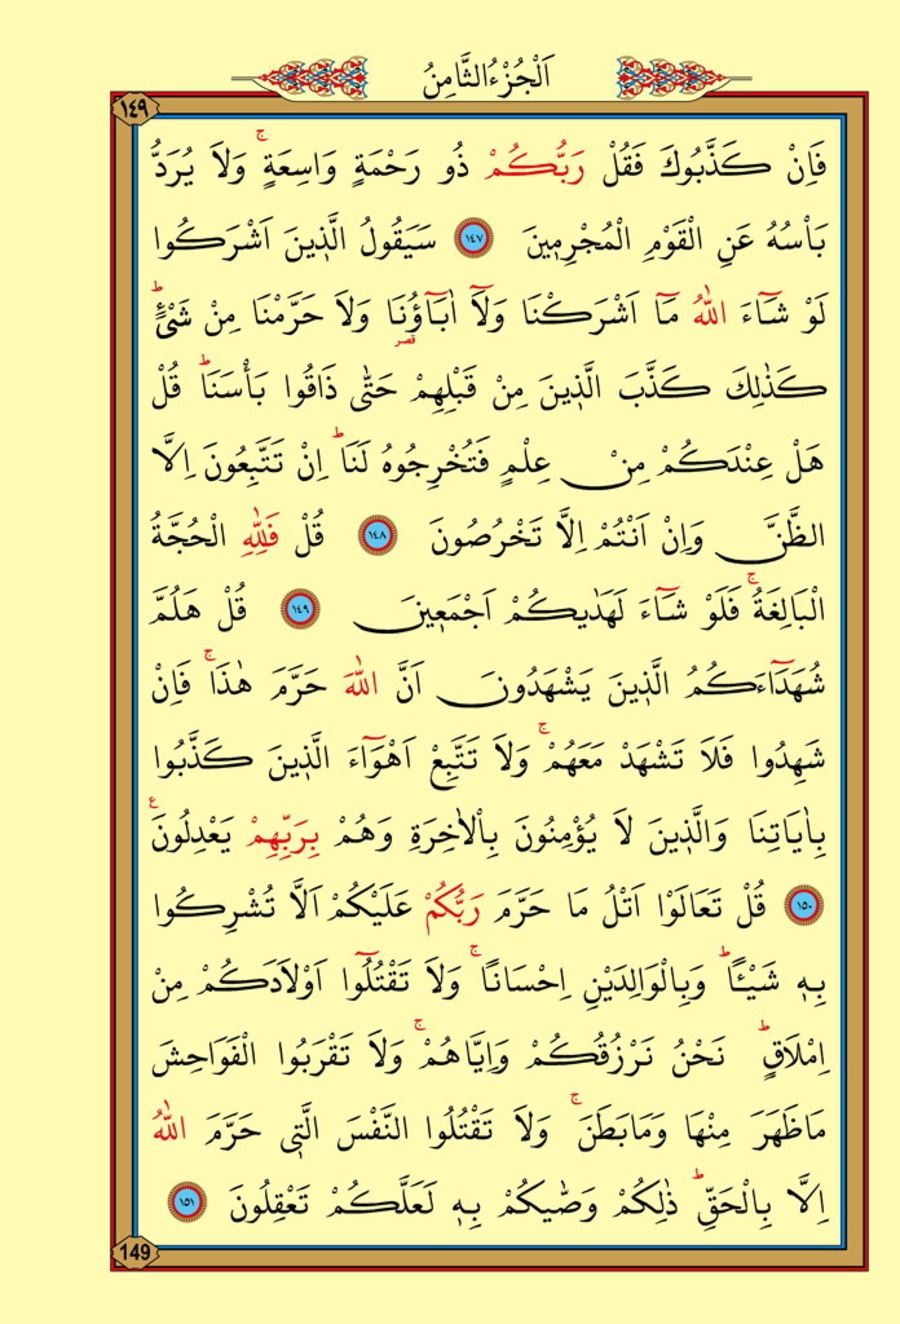 اَلْجُزْءُ الثَّامِنُ
١٤٩
فَاِنْ كَذَّبُوكَ فَقُلْ رَبُّكُمْ ذُو رَحْمَةٍ وَاسِعَةٍۚ وَلَا يُرَدُّ
بَاْسُهُ عَنِ الْقَوْمِ الْمُجْرِمٖينَ ١٤٧ سَيَقُولُ الَّذٖينَ اَشْرَكُوا
لَوْ شَٓاءَ اللّٰهُ مَٓا اَشْرَكْنَا وَلَٓا اٰبَٓاؤُ۬نَا وَلَا حَرَّمْنَا مِنْ شَیْءٍؕ
قصر
كَذٰلِكَ كَذَّبَ الَّذٖينَ مِنْ قَبْلِهِمْ حَتّٰى ذَاقُوا بَأْسَنَاؕ قُلْ
هَلْ عِنْدَكُمْ مِنْ عِلْمٍ فَتُخْرِجُوهُ لَنَاؕ اِنْ تَتَّبِعُونَ اِلَّا
الظَّنَّ وَاِنْ اَنْتُمْ اِلَّا تَخْرُصُونَ ١٤٨ قُلْ فَلِلّٰهِ الْحُجَّةُ
الْبَالِغَةُۚ فَلَوْ شَٓاءَ لَهَدٰيكُمْ اَجْمَعٖينَ ١٤٩ قُلْ هَلُمَّ
شُهَدَٓاءَكُمُ الَّذٖينَ يَشْهَدُونَ اَنَّ اللّٰهَ حَرَّمَ هٰذَاۚ فَاِنْ
شَهِدُوا فَلَا تَشْهَدْ مَعَهُمْۚ وَلَا تَتَّبِعْ اَهْوَٓاءَ الَّذٖينَ كَذَّبُوا
بِاٰيَاتِنَا وَالَّذٖينَ لَا يُؤْمِنُونَ بِالْاٰخِرَةِ وَهُمْ بِرَبِّهِمْ يَعْدِلُونَ ع
١٥٠ قُلْ تَعَالَوْا اَتْلُ مَا حَرَّمَ رَبُّكُمْ عَلَيْكُمْ اَلَّا تُشْرِكُوا
بِهٖ شَيْـًٔاؕ وَبِالْوَالِدَيْنِ اِحْسَانًاۚ وَلَا تَقْتُلُٓوا اَوْلَادَكُمْ مِنْ
اِمْلَاقٍؕ نَحْنُ نَرْزُقُكُمْ وَاِيَّاهُمْۚ وَلَا تَقْرَبُوا الْفَوَاحِشَ
مَا ظَهَرَ مِنْهَا وَمَا بَطَنَۚ وَلَا تَقْتُلُوا النَّفْسَ الَّتٖى حَرَّمَ اللّٰهُ
اِلَّا بِالْحَقِّؕ ذٰلِكُمْ وَصّٰيكُمْ بِهٖ لَعَلَّكُمْ تَعْقِلُونَ ١٥١
149